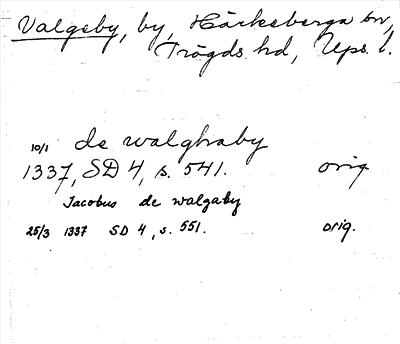 Valgeby, by, Häckeberga sn,
Trögds hd, Ups. l.
10/1 de walghaby
1337, SD 4, s. 541. orig
Jacobus de walgaby
25/3 1337 SD 4, s. 551. orig.